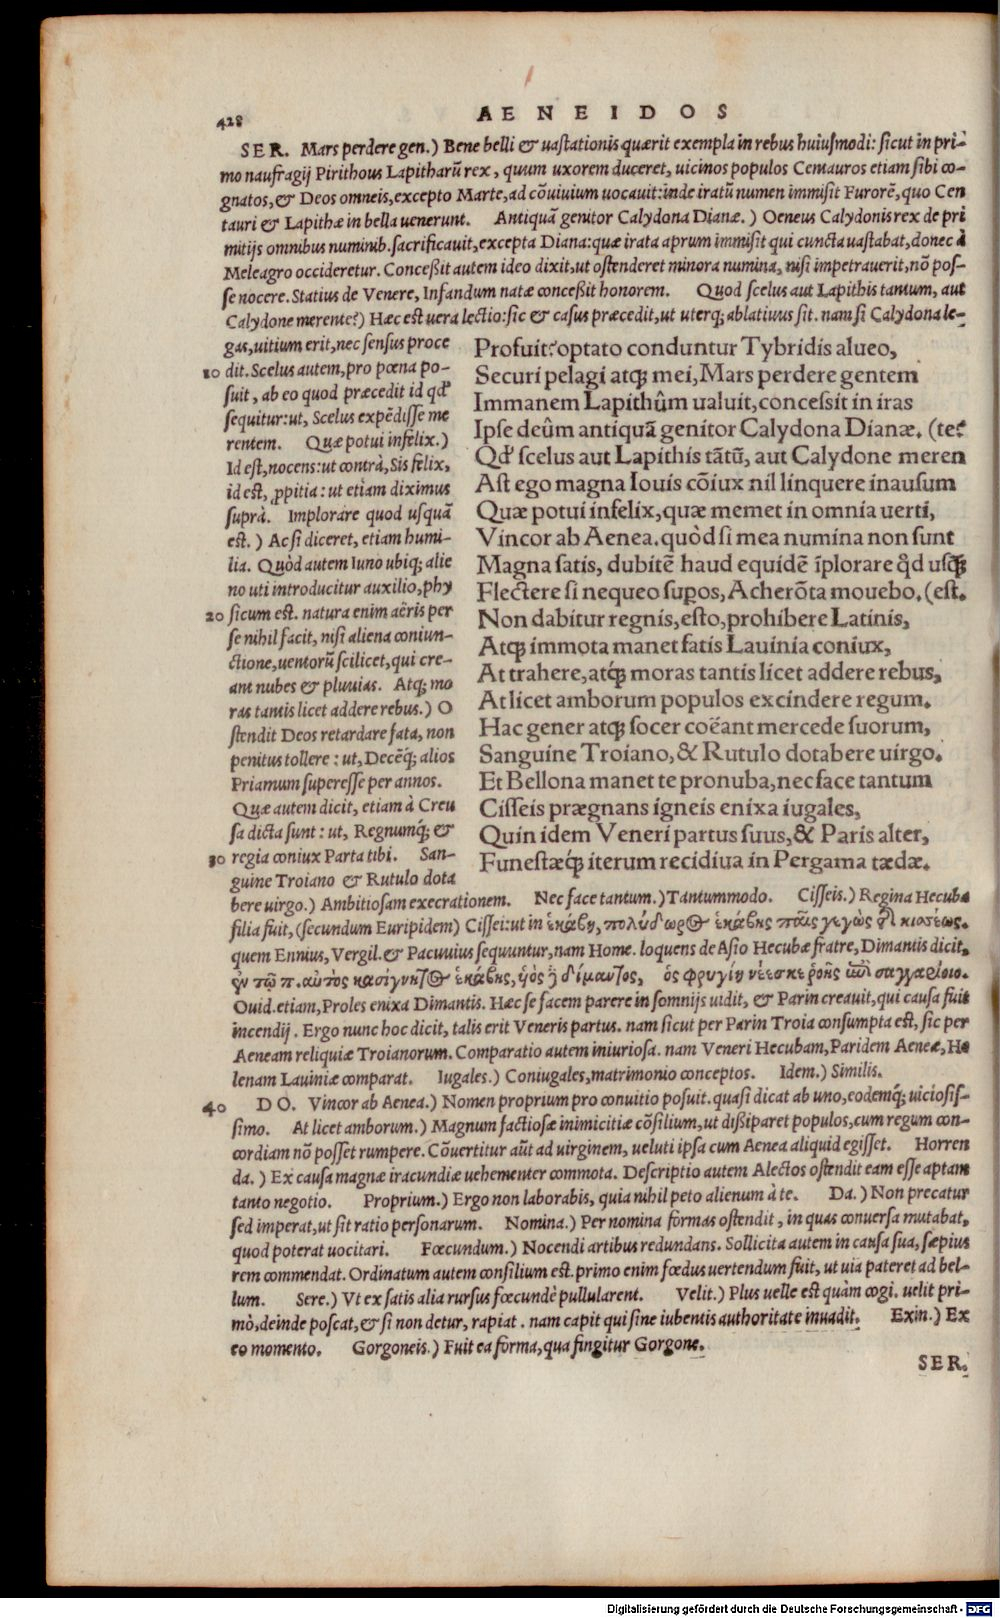 428
AENEIDOS
SER. Mars perdere gen.) Bene belli & uastationis quærit exempla in rebus huiusmodi: sicut in pri-
mo naufragij Pirithous Lapitharũ rex, quum uxorem duceret, uicinos populos Centauros etiam sibi co-
gnatos, & Deos omneis, excepto Marte, ad cõuiuium uocauit: inde iratũ numen immisit Furorẽ, quo Cen
tauri & Lapithæ in bella uenerunt. Antiquã genitor Calydona Dianæ.) Oeneus Calydonis rex de pri
mitijs omnibus numinib. sacrificauit, excepta Diana: quæ irata aprum immisit qui cuncta uastabat, donec à
Meleagro occideretur. Conceßit autem ideo dixit, ut ostenderet minora numina, nisi impetrauerit, nõ pos-
se nocere. Statius de Venere, Infandum natæ conceßit honorem. Quod scelus aut Lapithis tantum, aut
Calydone merente?) Hæc est uera lectio: sic & casus præcedit, ut uterq; ablatiuus sit. nam si Calydona le-
gas, uitium erit, nec sensus proce
10 dit. Scelus autem, pro pœna po-
suit, ab eo quod præcedit id qđ
sequitur: ut, Scelus expẽdisse me
rentem. Quæ potui infelix.)
Id est, nocens: ut contrà, Sis felix,
id est, ꝓpitia: ut etiam diximus
suprà. Implorare quod usquã
est.) Ac si diceret, etiam humi-
lia. Quòd autem Iuno ubiq; alie
no uti introducitur auxilio, phy
20 sicum est. natura enim aëris per
se nihil facit, nisi aliena coniun-
ctione, uentorũ scilicet, qui cre-
ant nubes & pluuias. Atq; mo
ras tantis licet addere rebus.) O
stendit Deos retardare fata, non
penitus tollere: ut, Decẽq́; alios
Priamum superesse per annos.
Quæ autem dicit, etiam à Creu
sa dicta sunt: ut, Regnumq́; &
30 regia coniux Parta tibi. San-
guine Troiano & Rutulo dota
Profuit? optato conduntur Tybridis alueo,
Securi pelagi atq; mei, Mars perdere gentem
Immanem Lapithûm ualuit, concessit in iras
Ipse deûm antiquã genitor Calydona Dianæ. (te?
Qđ scelus aut Lapithis tãtũ, aut Calydone meren
Ast ego magna Iouis cõiux nil linquere inausum
Quæ potui infelix, quæ memet in omnia uerti,
Vincor ab Aenea. quòd si mea numina non sunt
Magna satis, dubitẽ haud equidẽ ĩplorare qđ usq̃
Flectere si nequeo suꝑos, Acherõta mouebo. (est.
Non dabitur regnis, esto, prohibere Latinis,
Atq; immota manet fatis Lauinia coniux,
At trahere, atq́; moras tantis licet addere rebus,
At licet amborum populos excindere regum.
Hac gener atq; socer coëant mercede suorum,
Sanguine Troiano, & Rutulo dotabere uirgo.
Et Bellona manet te pronuba, nec face tantum
Cisseis prægnans igneis enixa iugales,
Quin idem Veneri partus suus, & Paris alter,
Funestæq́; iterum recidiua in Pergama tædæ.
bere uirgo.) Ambitiosam execrationem. Nec face tantum.) Tantummodo. Cisseis.) Regina Hecuba
filia fuit, (secundum Euripidem) Cissei: ut in ἑκάβῃ, πολύδωρος ἑκάβης παῖς γεγὼς τῆς κισσέως.
quem Ennius, Vergil. & Pacuuius sequuntur, nam Home. loquens de Asio Hecubæ fratre, Dimantis dicit,
ἐν τῷ π. αὐτὸς κασίγνητος ἑκάβης, ὑὸς δὲ δίμαντος, ὃς φρυγίῃ νέεσκε ῥοῇς ἐπὶ σαγγαρίοιο.
Ouid. etiam, Proles enixa Dimantis. Hæc se facem parere in somnijs uidit, & Parin creauit, qui causa fuit
incendij. Ergo nunc hoc dicit, talis erit Veneris partus. nam sicut per Parin Troia consumpta est, sic per
Aeneam reliquiæ Troianorum. Comparatio autem iniuriosa. nam Veneri Hecubam, Paridem Aeneæ, He
lenam Lauiniæ comparat. Iugales.) Coniugales, matrimonio conceptos. Idem.) Similis.
40 DO. Vincor ab Aenea.) Nomen proprium pro conuitio posuit. quasi dicat ab uno, eodemq́; uiciosis-
simo. At licet amborum.) Magnum factiosæ inimicitiæ cõsilium, ut dißiparet populos, cum regum con-
cordiam nõ posset rumpere. Cõuertitur aũt ad uirginem, ueluti ipsa cum Aenea aliquid egisset. Horren
da.) Ex causa magnæ iracundiæ uehementer commota. Descriptio autem Alectos ostendit eam esse aptam
tanto negotio. Proprium.) Ergo non laborabis, quia nihil peto alienum à te. Da.) Non precatur
sed imperat, ut sit ratio personarum. Nomina.) Per nomina formas ostendit, in quas conuersa mutabat,
quod poterat uocitari. Fœcundum.) Nocendi artibus redundans. Sollicita autem in causa sua, sæpius
rem commendat. Ordinatum autem consilium est. primo enim fœdus uertendum fuit, ut uia pateret ad bel-
lum. Sere.) Vt ex satis alia rursus fœcundè pullularent. Velit.) Plus uelle est quàm cogi. uelit pri-
mò, deinde poscat, & si non detur, rapiat. nam capit qui sine iubentis authoritate inuadit. Exin.) Ex
eo momento. Gorgoneis.) Fuit ea forma, qua fingitur Gorgone.
SER.
Digitalisierung gefördert durch die Deutsche Forschungsgemeinschaft - DFG